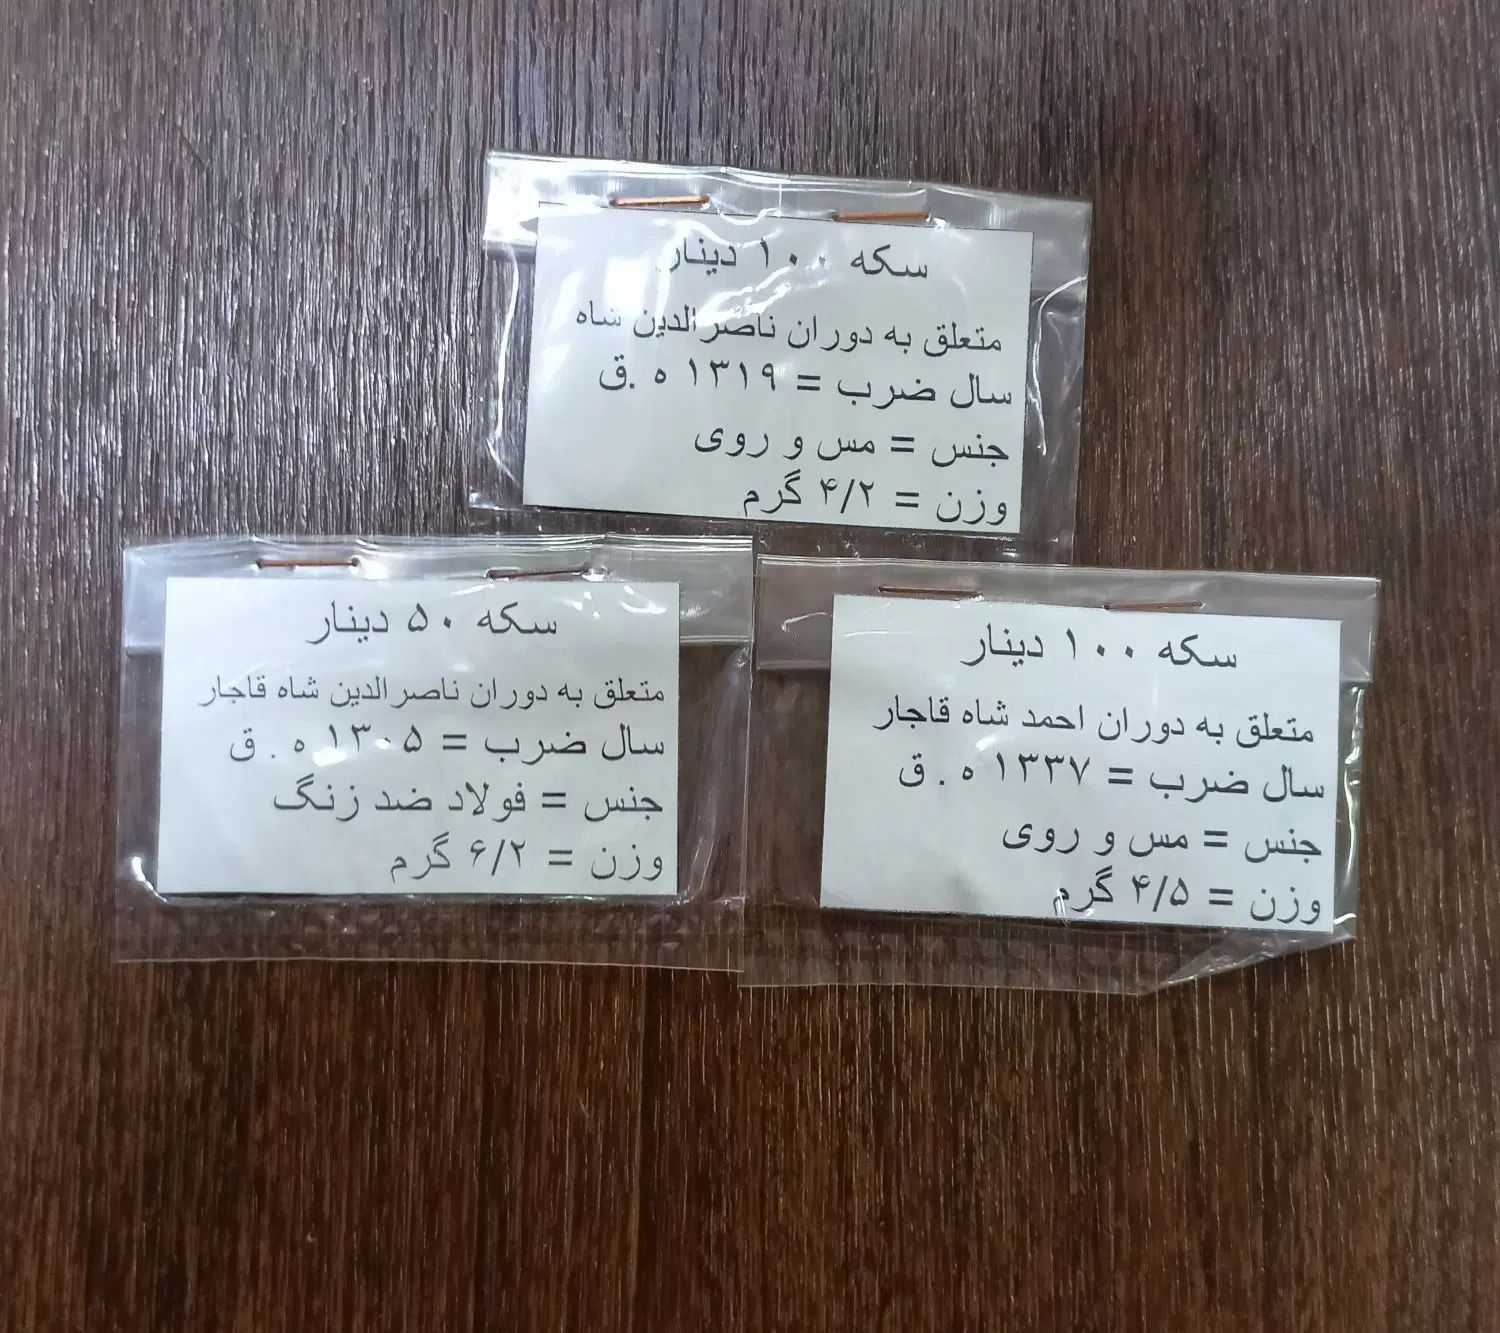 سکه ۱۰۰ دینار
متعلق به دوران ناصرالدین شاه
سال ضرب = ۱۳۱۹ ه .ق
جنس = مس و روی
وزن = ۴/۲ گرم
سکه ۱۰۰ دینار
متعلق به دوران احمد شاه قاجار
سال ضرب = ۱۳۳۷ ه . ق
جنس = مس و روی
وزن = ۴/۵ گرم
سکه ۵۰ دینار
متعلق به دوران ناصرالدین شاه قاجار
سال ضرب = ۱۳۰۵ ه . ق
جنس = فولاد ضد زنگ
وزن = ۶/۲ گرم